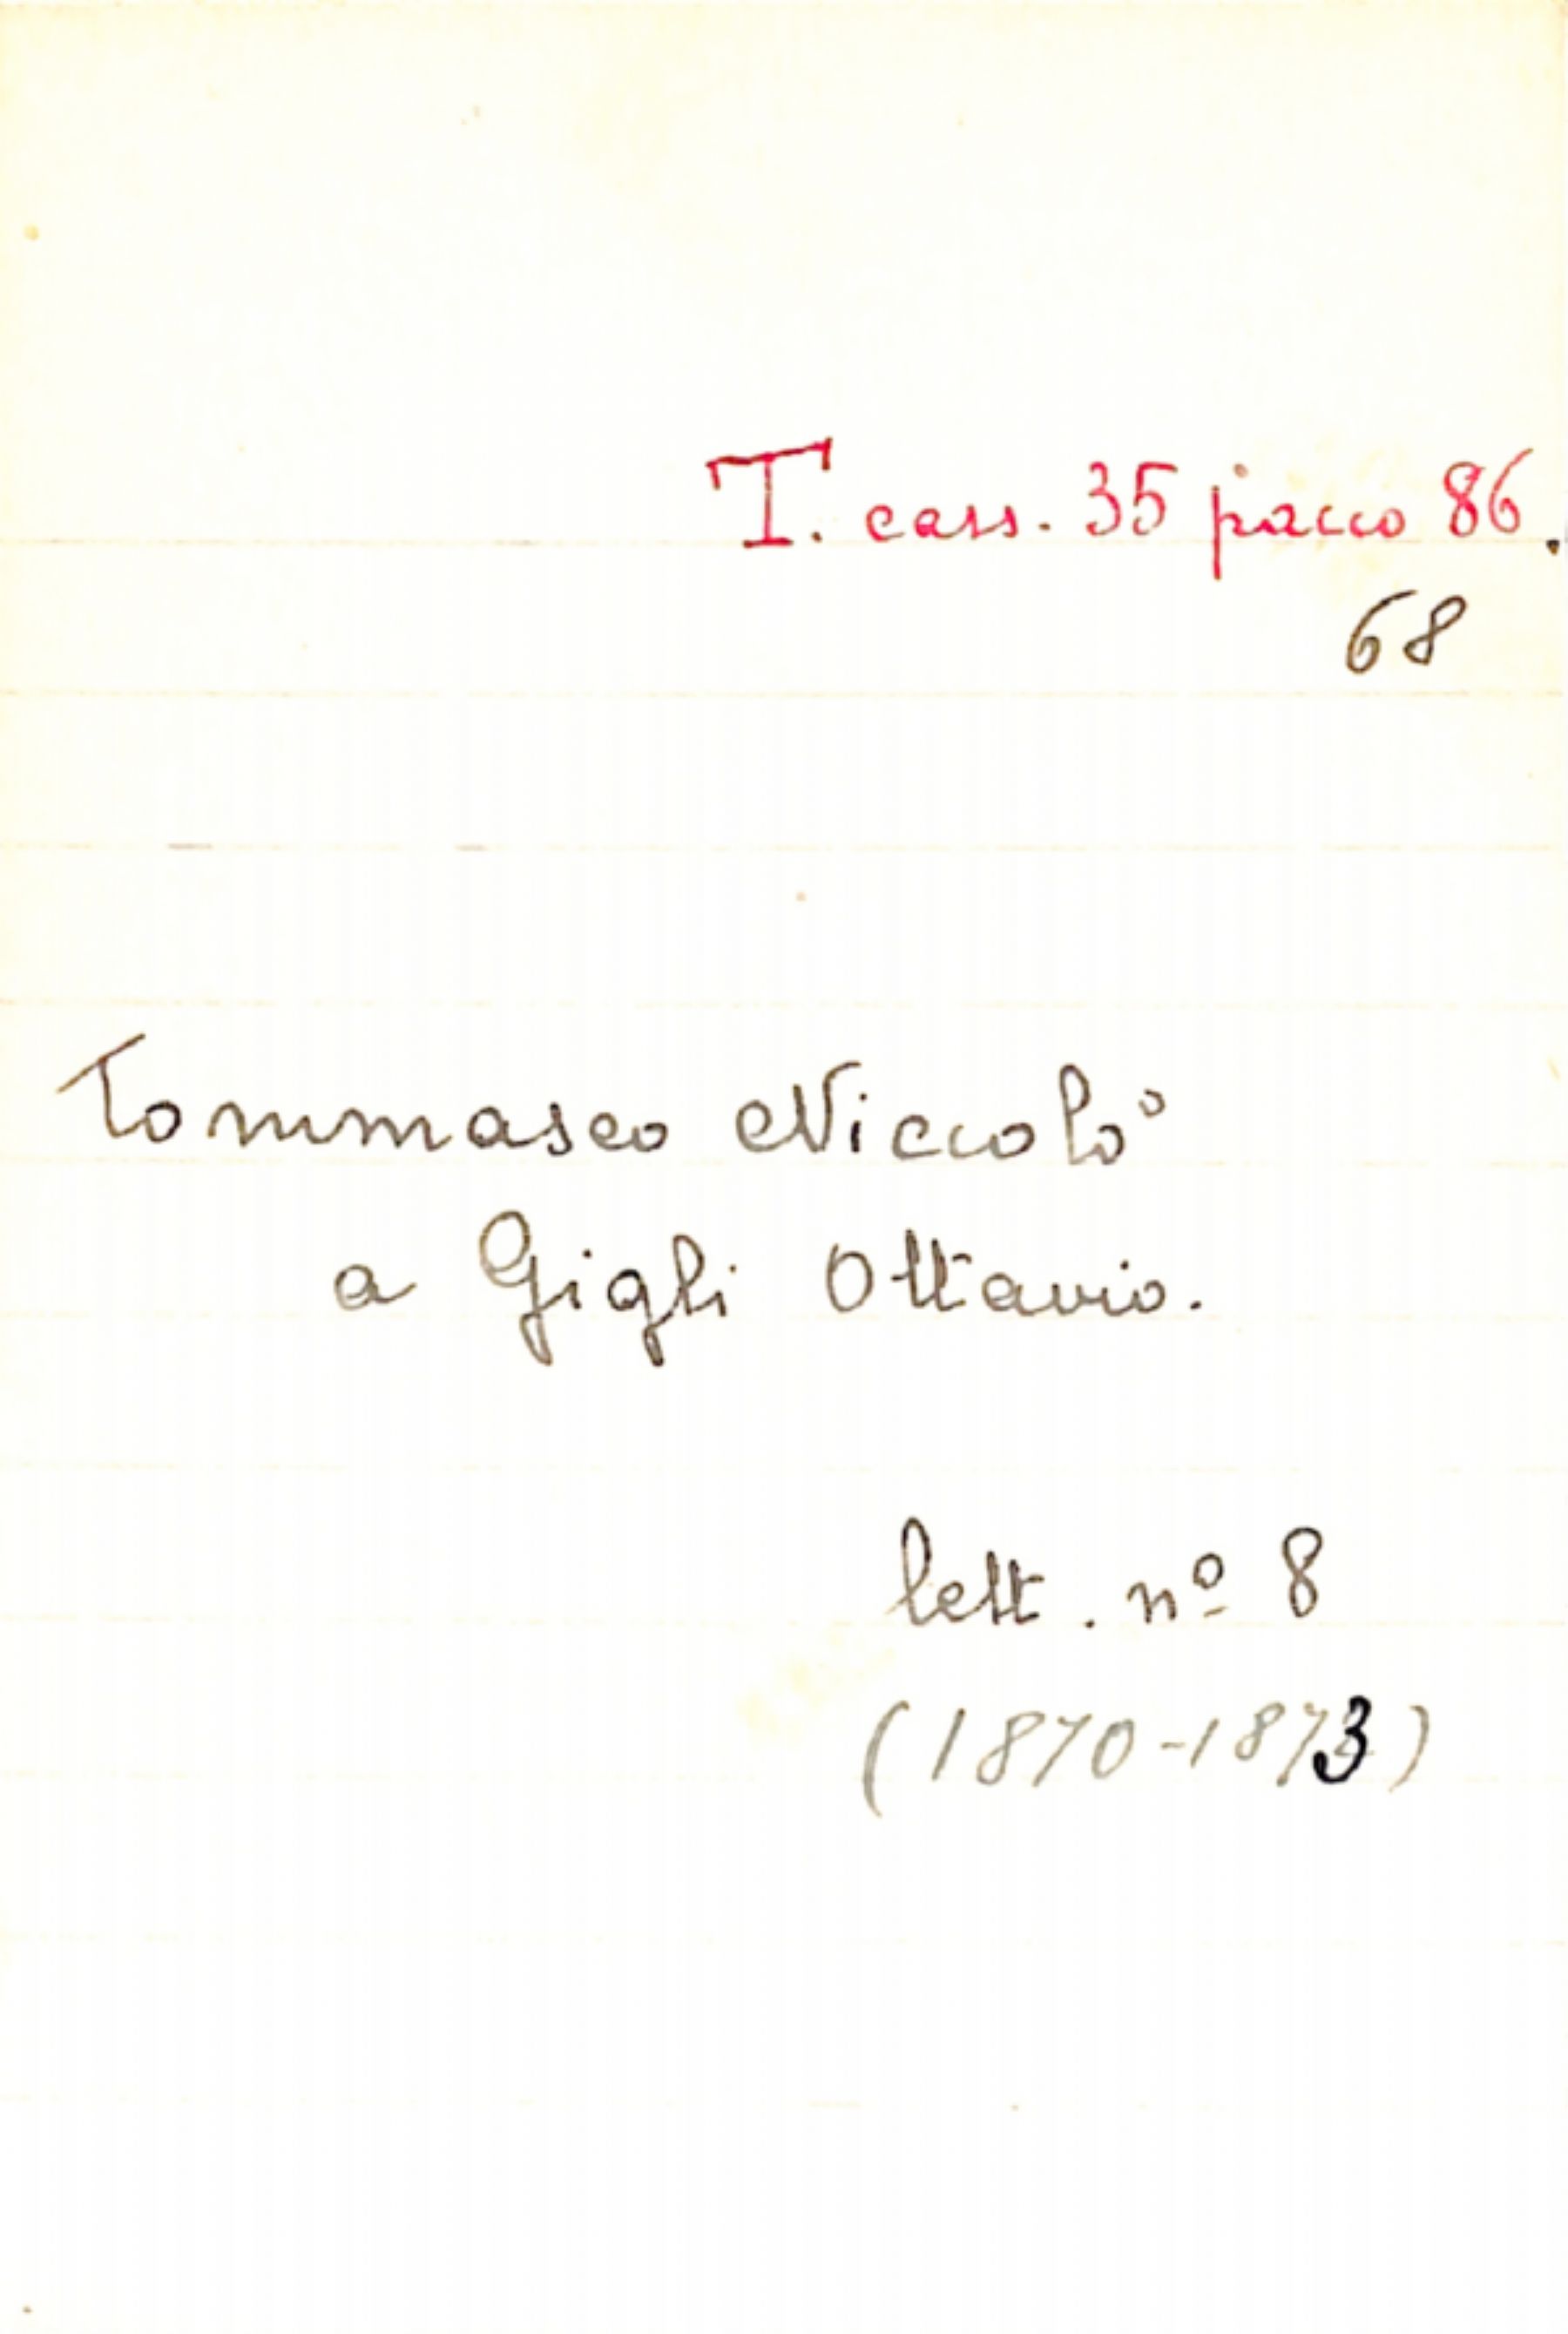 T. cass. 35 pacco 86.
68
Tommaseo Niccolò
a Gigli Ottavio.
lett. nº 8
(1870-1873)